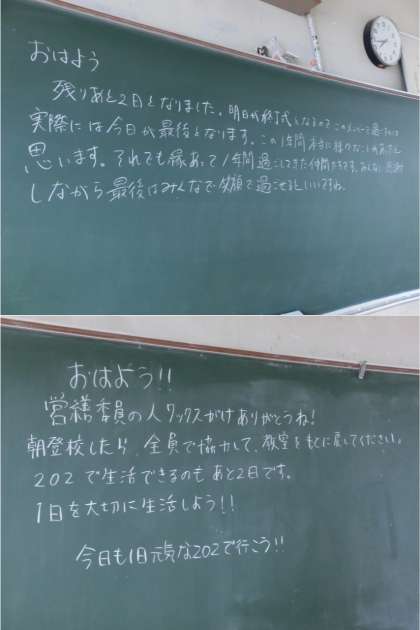 おはよう
残りあと2日となりました。明日が終了式となるので、このメンバーで過ごすのは
実際には今日が最後となります。この1年間本当に様々なことがあったと
思います。それでも縁あって1年間過ごしてきた仲間たちです。みんなに感謝
しながら最後はみんなで笑顔で過ごせるといいですね。
おはよう!!
営繕委員の人ワックスがけありがとうね!
朝登校したら、全員で協力して、教室をもとに戻してください。
202で生活できるのもあと2日です。
1日を大切に生活しよう!!
今日も1日元気な202で行こう!!